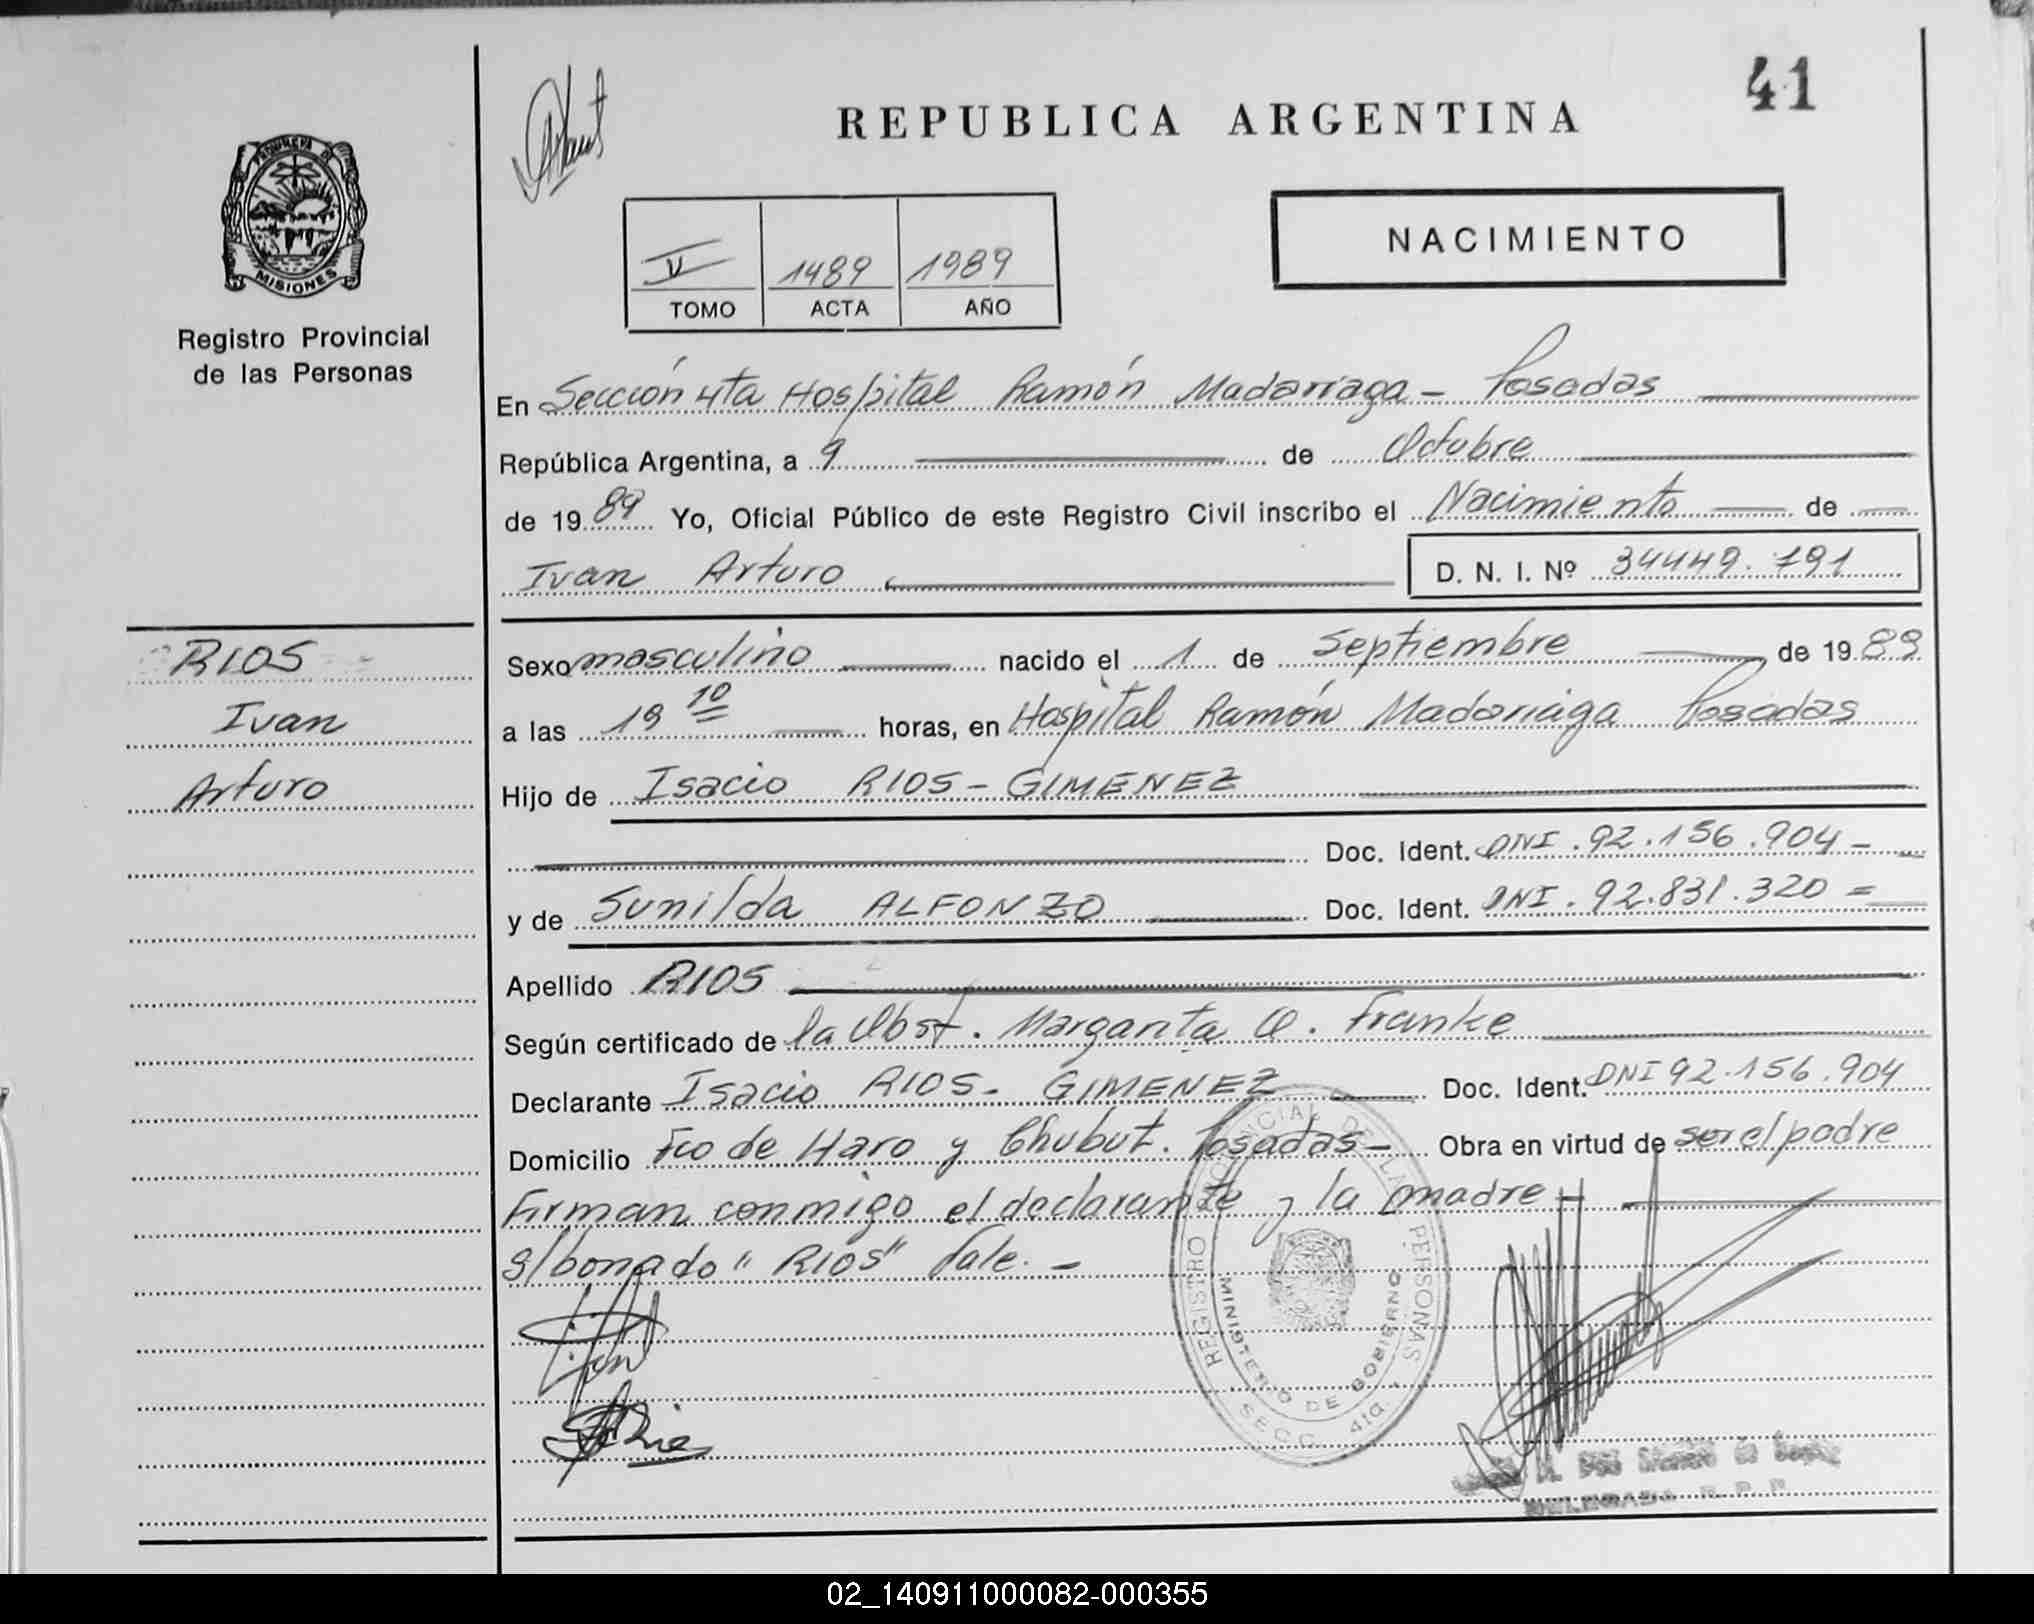 41
REPUBLICA ARGENTINA
PROVINCIA DE
MISIONES
Registro Provincial
de las Personas
V 1489 1989
TOMO ACTA AÑO
NACIMIENTO
En Sección 4ta Hospital Ramón Madariaga - Posadas
República Argentina, a 9 de Octubre
de 1989 Yo, Oficial Público de este Registro Civil inscribo el Nacimiento de
Ivan Arturo D. N. I. Nº 34449.791
RIOS
Ivan
Arturo
Sexo masculino nacido el 1 de Septiembre de 1989
a las 19 10 horas, en Hospital Ramón Madariaga Posadas
Hijo de Isacio RIOS - GIMENEZ
Doc. Ident. DNI. 92.156.904 -
y de Sunilda ALFONZO Doc. Ident. DNI. 92.831.320 =
Apellido RIOS
Según certificado de la Obst. Margarita O. Franke
Declarante Isacio RIOS - GIMENEZ Doc. Ident. DNI 92.156.904
Domicilio Fco de Haro y Chubut. Posadas - Obra en virtud de ser el padre
Firman conmigo el declarante y la madre -
s/borrado "RIOS" Vale. -
REGISTRO PROVINCIAL DE LAS PERSONAS
MINISTERIO DE GOBIERNO
SECC. 4ta.
DELEGADA R.P.P.
02_140911000082-000355